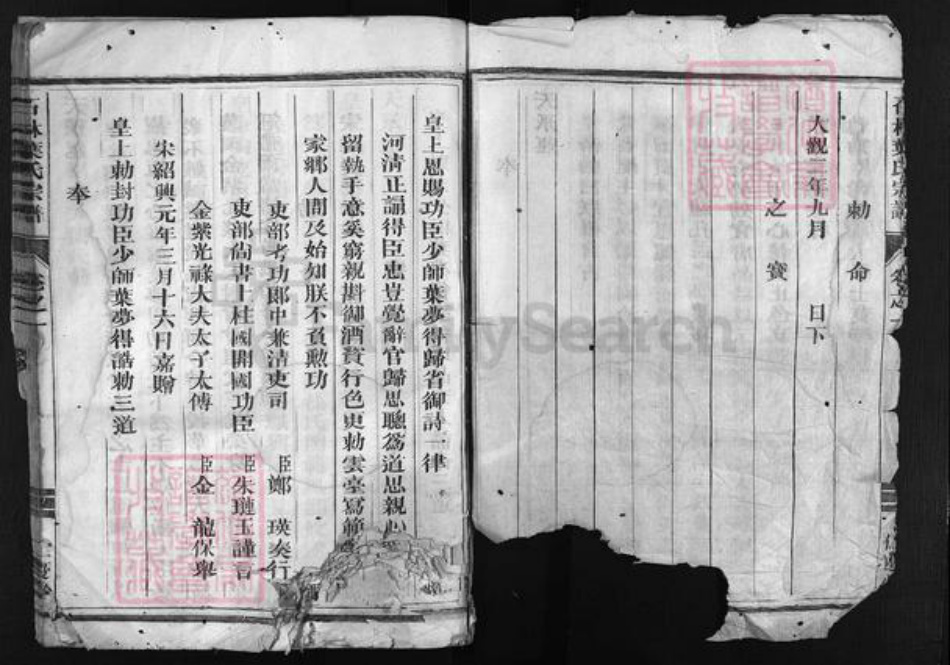 勅命
大觀二年九月 日下
之寶
皇上恩賜功臣少師葉夢得歸省御詩一律
河淸正誦得臣忠豈覺辭官歸思聰爲道思親心
留執手意奚窮親斟御酒賁行色更勅雲臺寫
家鄉人間及始知朕不負勲功
吏部考功郎中兼淸吏司 臣鄭瑛奏行
吏部尚書上柱國開國功臣 臣朱璉玉謹言
金紫光祿大夫太子太傅 臣金龍保舉
宋紹興元年三月十六日嘉贈
皇上勅封功臣少師葉夢得誥勅三道
奉
石林葉氏宗譜
FamilySearch